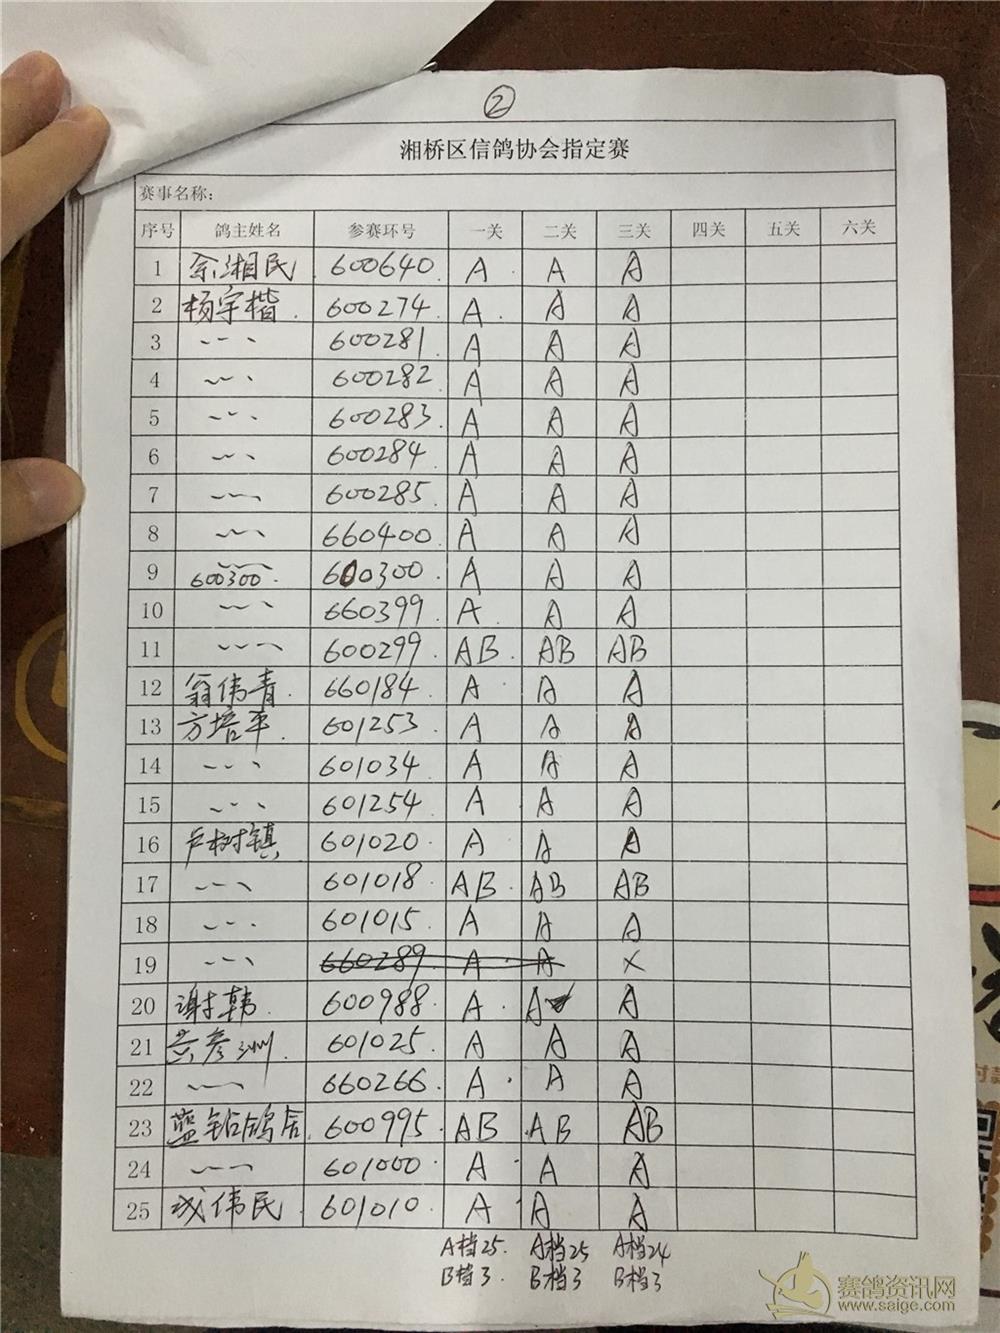 ②
湘桥区信鸽协会指定赛
赛事名称:
序号 鸽主姓名 参赛环号 一关 二关 三关 四关 五关 六关
1 余湘民 600640 A A A
2 杨宇楷 600274 A A A
3 600281 A A A
4 600282 A A A
5 600283 A A A
6 600284 A A A
7 600285 A A A
8 660400 A A A
9 600300 600300 A A A
10 660399 A A A
11 600299 AB AB AB
12 翁伟青 660184 A A A
13 方培平 601253 A A A
14 601034 A A A
15 601254 A A A
16 卢树镇 601020 A A A
17 601018 AB AB AB
18 601015 A A A
19 660289 A A ×
20 谢韩 600988 A A A
21 黄彦洲 601025 A A A
22 660266 A A A
23 蓝钻鸽舍 600995 AB AB AB
24 601000 A A A
25 伟民 601010 A A A
A档25. A档25 A档24
B档3. B档3 B档3
赛鸽资讯网
www.saige.com